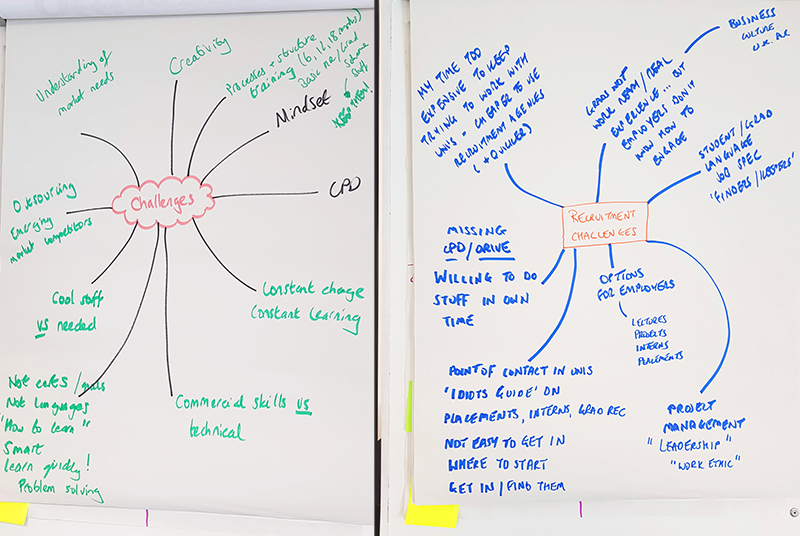 Understanding of
market needs
Creativity
Processes + structure
training (6, 12, 18 months)
Basic
Grad
Scheme
Stuff
KEEP THEM!
Mindset
CPD
Challenges
Outsourcing
Emerging
market competitors
Cool stuff
vs needed
Constant change
Constant learning
Commercial skills vs
technical
Not
Not languages
"How to learn"
Smart
Learn quickly!
Problem solving
MY TIME TOO
EXPENSIVE TO KEEP
TRYING TO WORK WITH
UNIS - CHEAPER TO USE
RECRUITMENT AGENCIES
(+ QUICKER)
GRADS NOT
WORK READY/REAL
EXPERIENCE... BUT
EMPLOYERS DON'T
KNOW HOW TO
ENGAGE
BUSINESS
CULTURE
STUDENT/GRAD
LANGUAGE
JOB SPEC
'FINDERS/KEEPERS'
RECRUITMENT
CHALLENGES
MISSING
CPD/DRIVE
WILLING TO DO
STUFF IN OWN
TIME
OPTIONS
FOR EMPLOYERS
LECTURES
PROJECTS
INTERNS
PLACEMENTS
POINT OF CONTACT IN UNIS
'IDIOTS GUIDE' ON
PLACEMENTS, INTERNS, GRAD REC
NOT EASY TO GET IN
WHERE TO START
GET IN / FIND THEM
PROJECT
MANAGEMENT
"LEADERSHIP"
"WORK ETHIC"